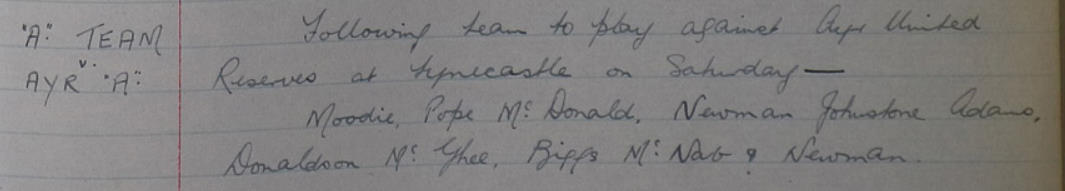 "A" TEAM
v.
AYR "A"
Following team to play against Ayr United
Reserves at Tynecastle on Saturday —
Moodie, Pope McDonald, Newman Johnstone Adams,
Donaldson McGhee, Biggs McNab & Newman.